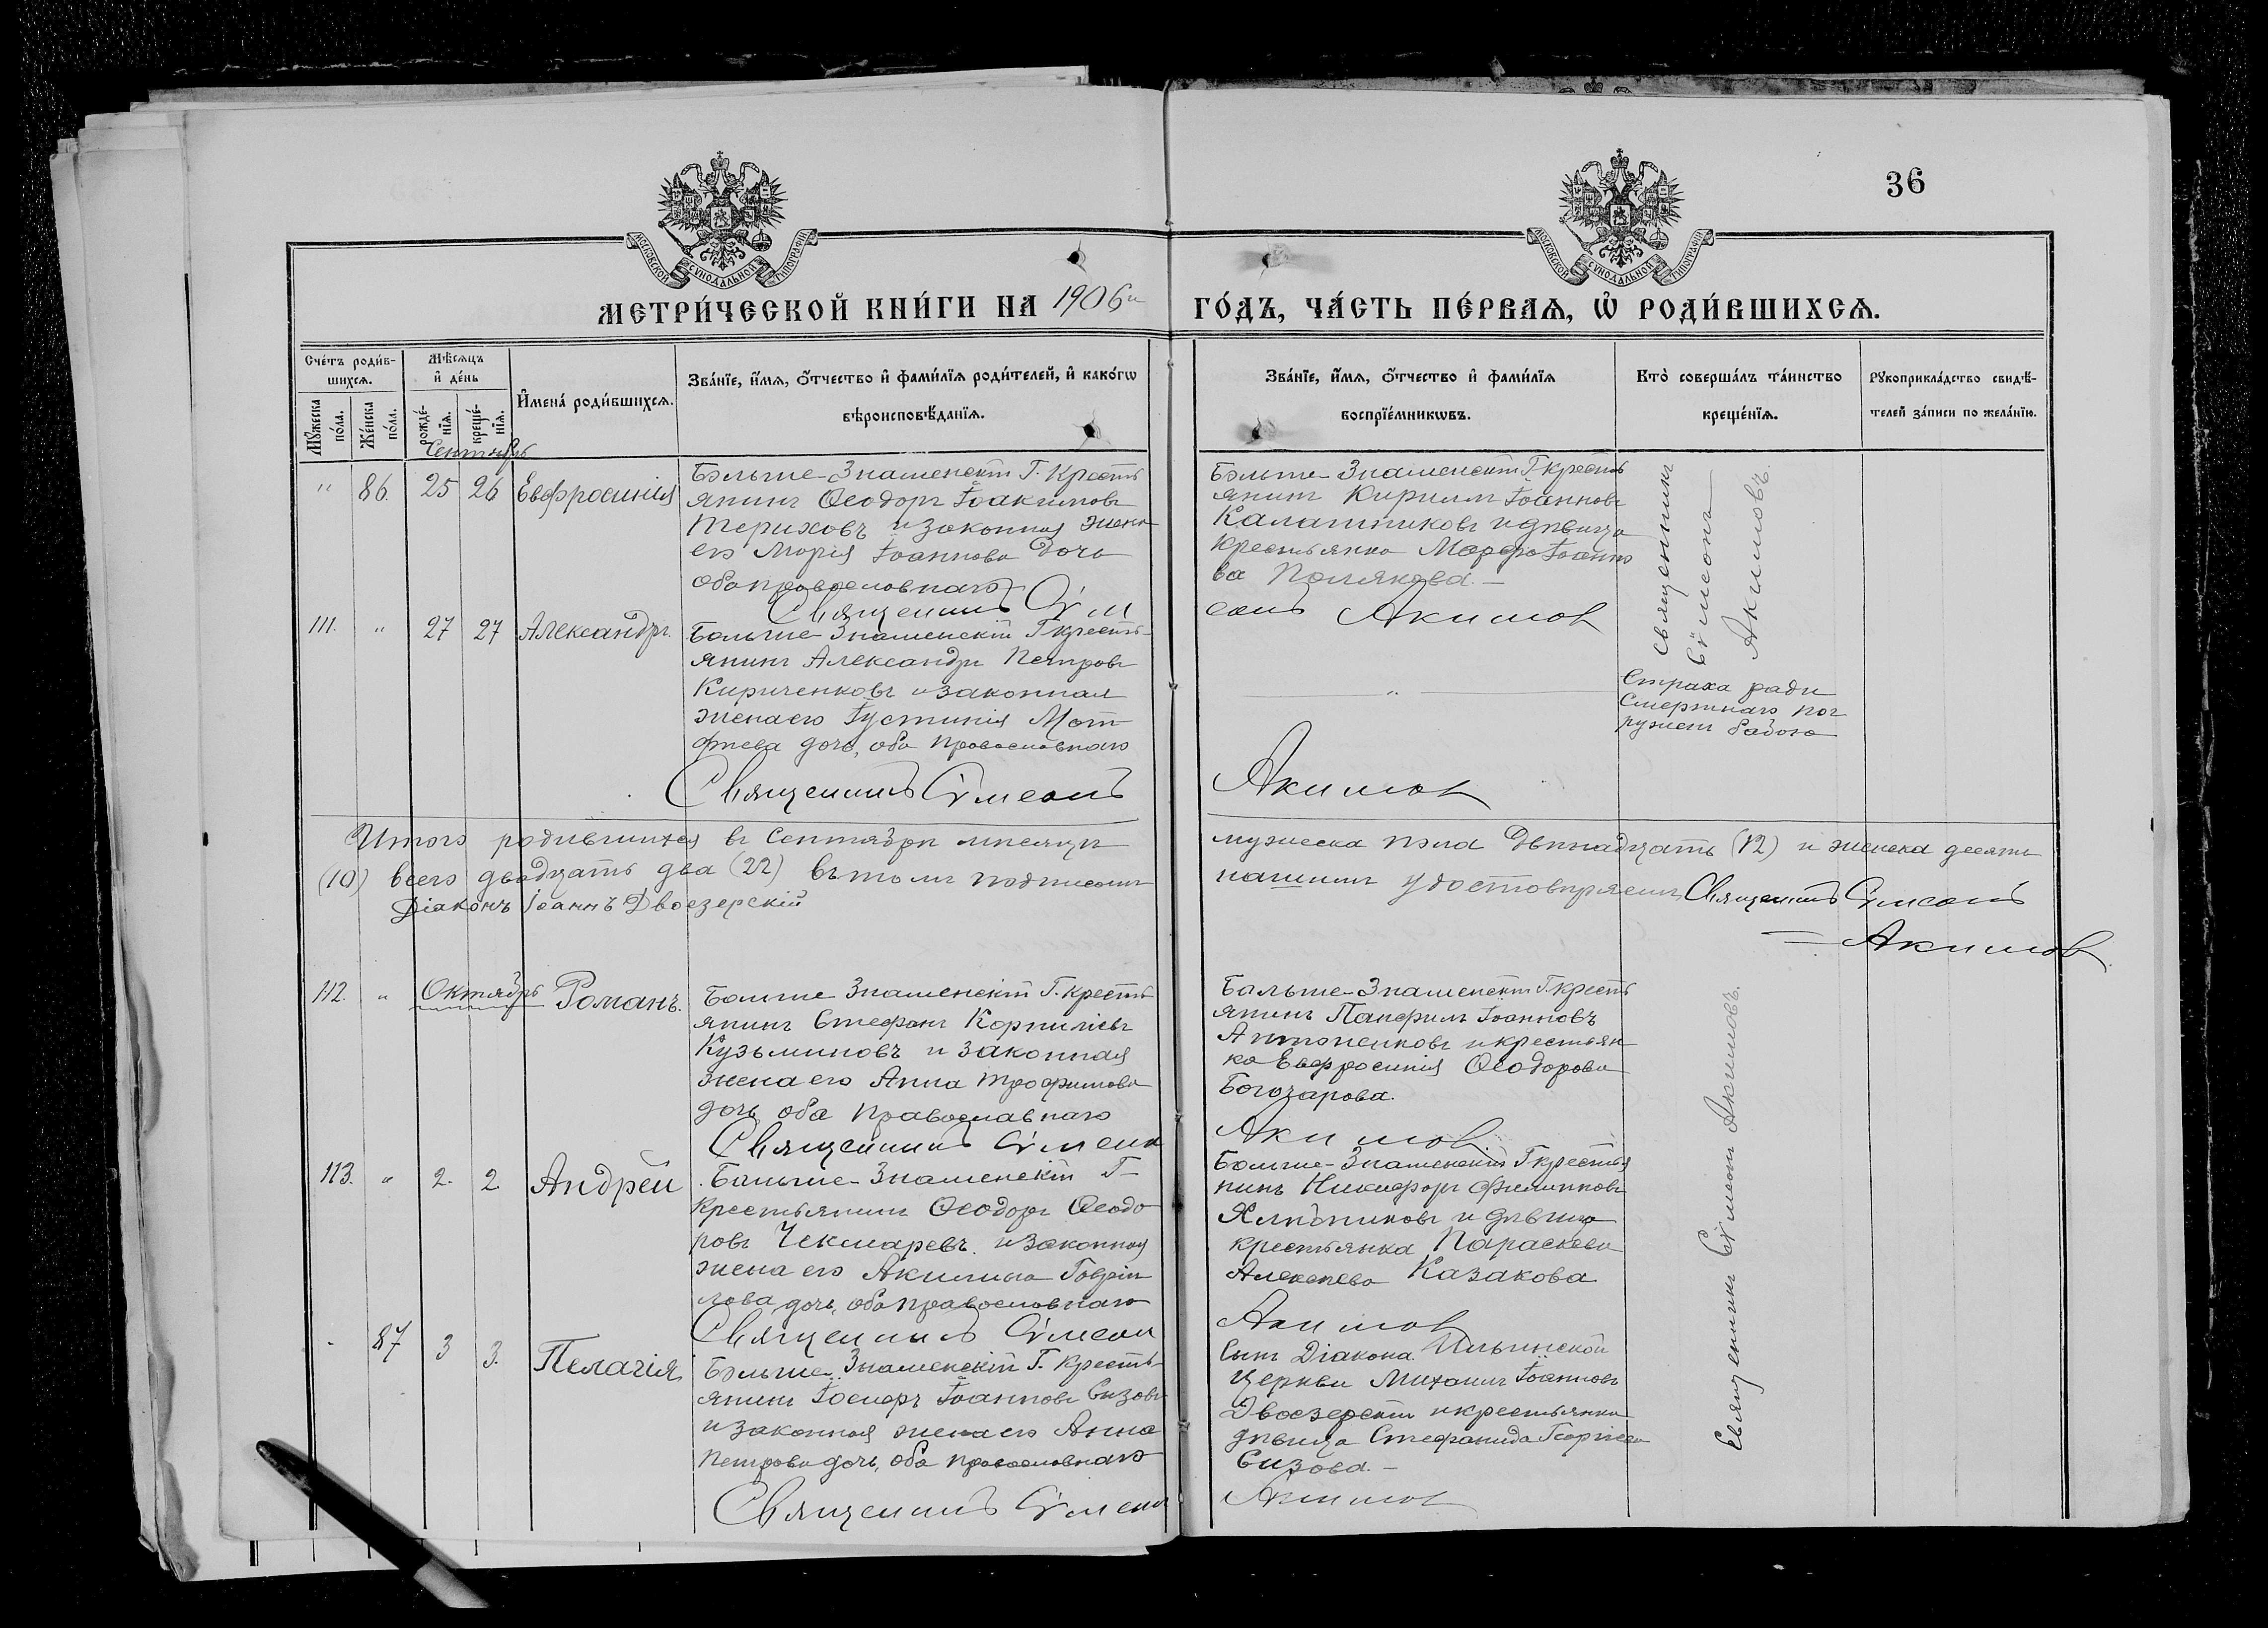 36
МОСКОВСКОЙ СѴНОДАЛЬНОЙ ТИПОГРАФІИ
МОСКОВСКОЙ СѴНОДАЛЬНОЙ ТИПОГРАФІИ
МЕТРИ́ЧЕСКОЙ КНИ́ГИ НА 1906й ГО́ДЪ, ЧА́СТЬ ПЕ́РВАѦ, Ѡ҆ РОДИ́ВШИХСѦ.
Сче́тъ роди́в-
шихсѧ.
Мꙋ́жеска по́ла.
Же́нска по́ла.
Мѣ́сѧцъ
и҆ де́нь
рожде́-
нїѧ.
креще́-
нїѧ.
И҆мена̀ роди́вшихсѧ.
Зва́нїе, и҆́мѧ, ѻ҆́тчество и҆ фами́лїѧ роди́телей, и҆ како́гѡ
вѣроисповѣ́данїѧ.
Зва́нїе, и҆́мѧ, ѻ҆́тчество и҆ фами́лїѧ
воспрїе́мникѡвъ.
Кто̀ соверша́лъ та́инство
креще́нїѧ.
Рꙋкоприкла́дство свидѣ́-
телей за́писи по жела́нїю.
Сентябрь
" 86. 25 26 Евфросинія
Больше-Знаменскій Г. Кресть
янинъ Ѳеодоръ Іоакимовъ
Териховъ и законная жена
его Марія Іоаннова дочь
оба православнаго
Священникъ Сѵм
Больше-Знаменскій Г. кресть
янинъ Кириллъ Іоанновъ
Калашниковъ и дѣвица
крестьянка Марфа Іоанно
ва Полякова.—
еонъ Акимов
Священникъ
Сѵмеонъ
Акимовъ.
111. " 27 27 Александръ.
Больше-Знаменскій Г. кресть-
янинъ Александръ Петровъ
Кириченковъ и законная
жена его Іустинія Мат
фѣева дочь, оба православнаго
Священникъ Сѵмеонъ
Акимов
Страха ради
Смертнаго пог
руженъ бабою
Итого родившихся въ Сентябрѣ мѣсяцѣ мужеска пола двѣнадцать (12) и женска десять
(10) всего двадцать два (22) въ томъ подписомъ нашимъ удостовѣряемъ Священникъ Сѵмеонъ
Діаконъ Іоаннъ Двоезерскій
Акимов.
112. " Октябрь Романъ.
Больше Знаменскій Г. кресть
янинъ Стефанъ Корниліевъ
Кузьминовъ и законная
жена его Анна Трофимова
дочь оба православнаго
Священникъ Сѵмеон
Больше-Знаменскій Г. кресть
янинъ Панфилъ Іоанновъ
Антоненковъ и крестьян
ка Евфросинія Ѳеодорова
Акимов.
113. " 2. 2. Андрей
Больше-Знаменскій Г—
Крестьянинъ Ѳеодоръ Ѳеодо
ровъ Чекмаревъ и законная
жена его Акилина Гаврiи
лова дочь, оба православнаго
Священникъ Сѵмеон
Больше-Знаменскій Г. крестья
нинъ Никифоръ Филипповъ
и дѣвица
крестьянка Параскева
Алексѣева Казакова
Акимов
- 87 3 3. Пелагія
Больше Знаменскій Г. Кресть-
янинъ Іосифъ Іоанновъ Сизовъ
и законная жена его Анна
Петрова дочь, оба православнаго
Священникъ Сѵмеон
Сынъ Діакона Ильинской
Церкви Михаилъ Іоанновъ
Двоезерскій и крестьянка
дѣвица Стефанида Георгіева
Сизова.—
Акимов
Священникъ Сѵмеонъ Акимовъ.